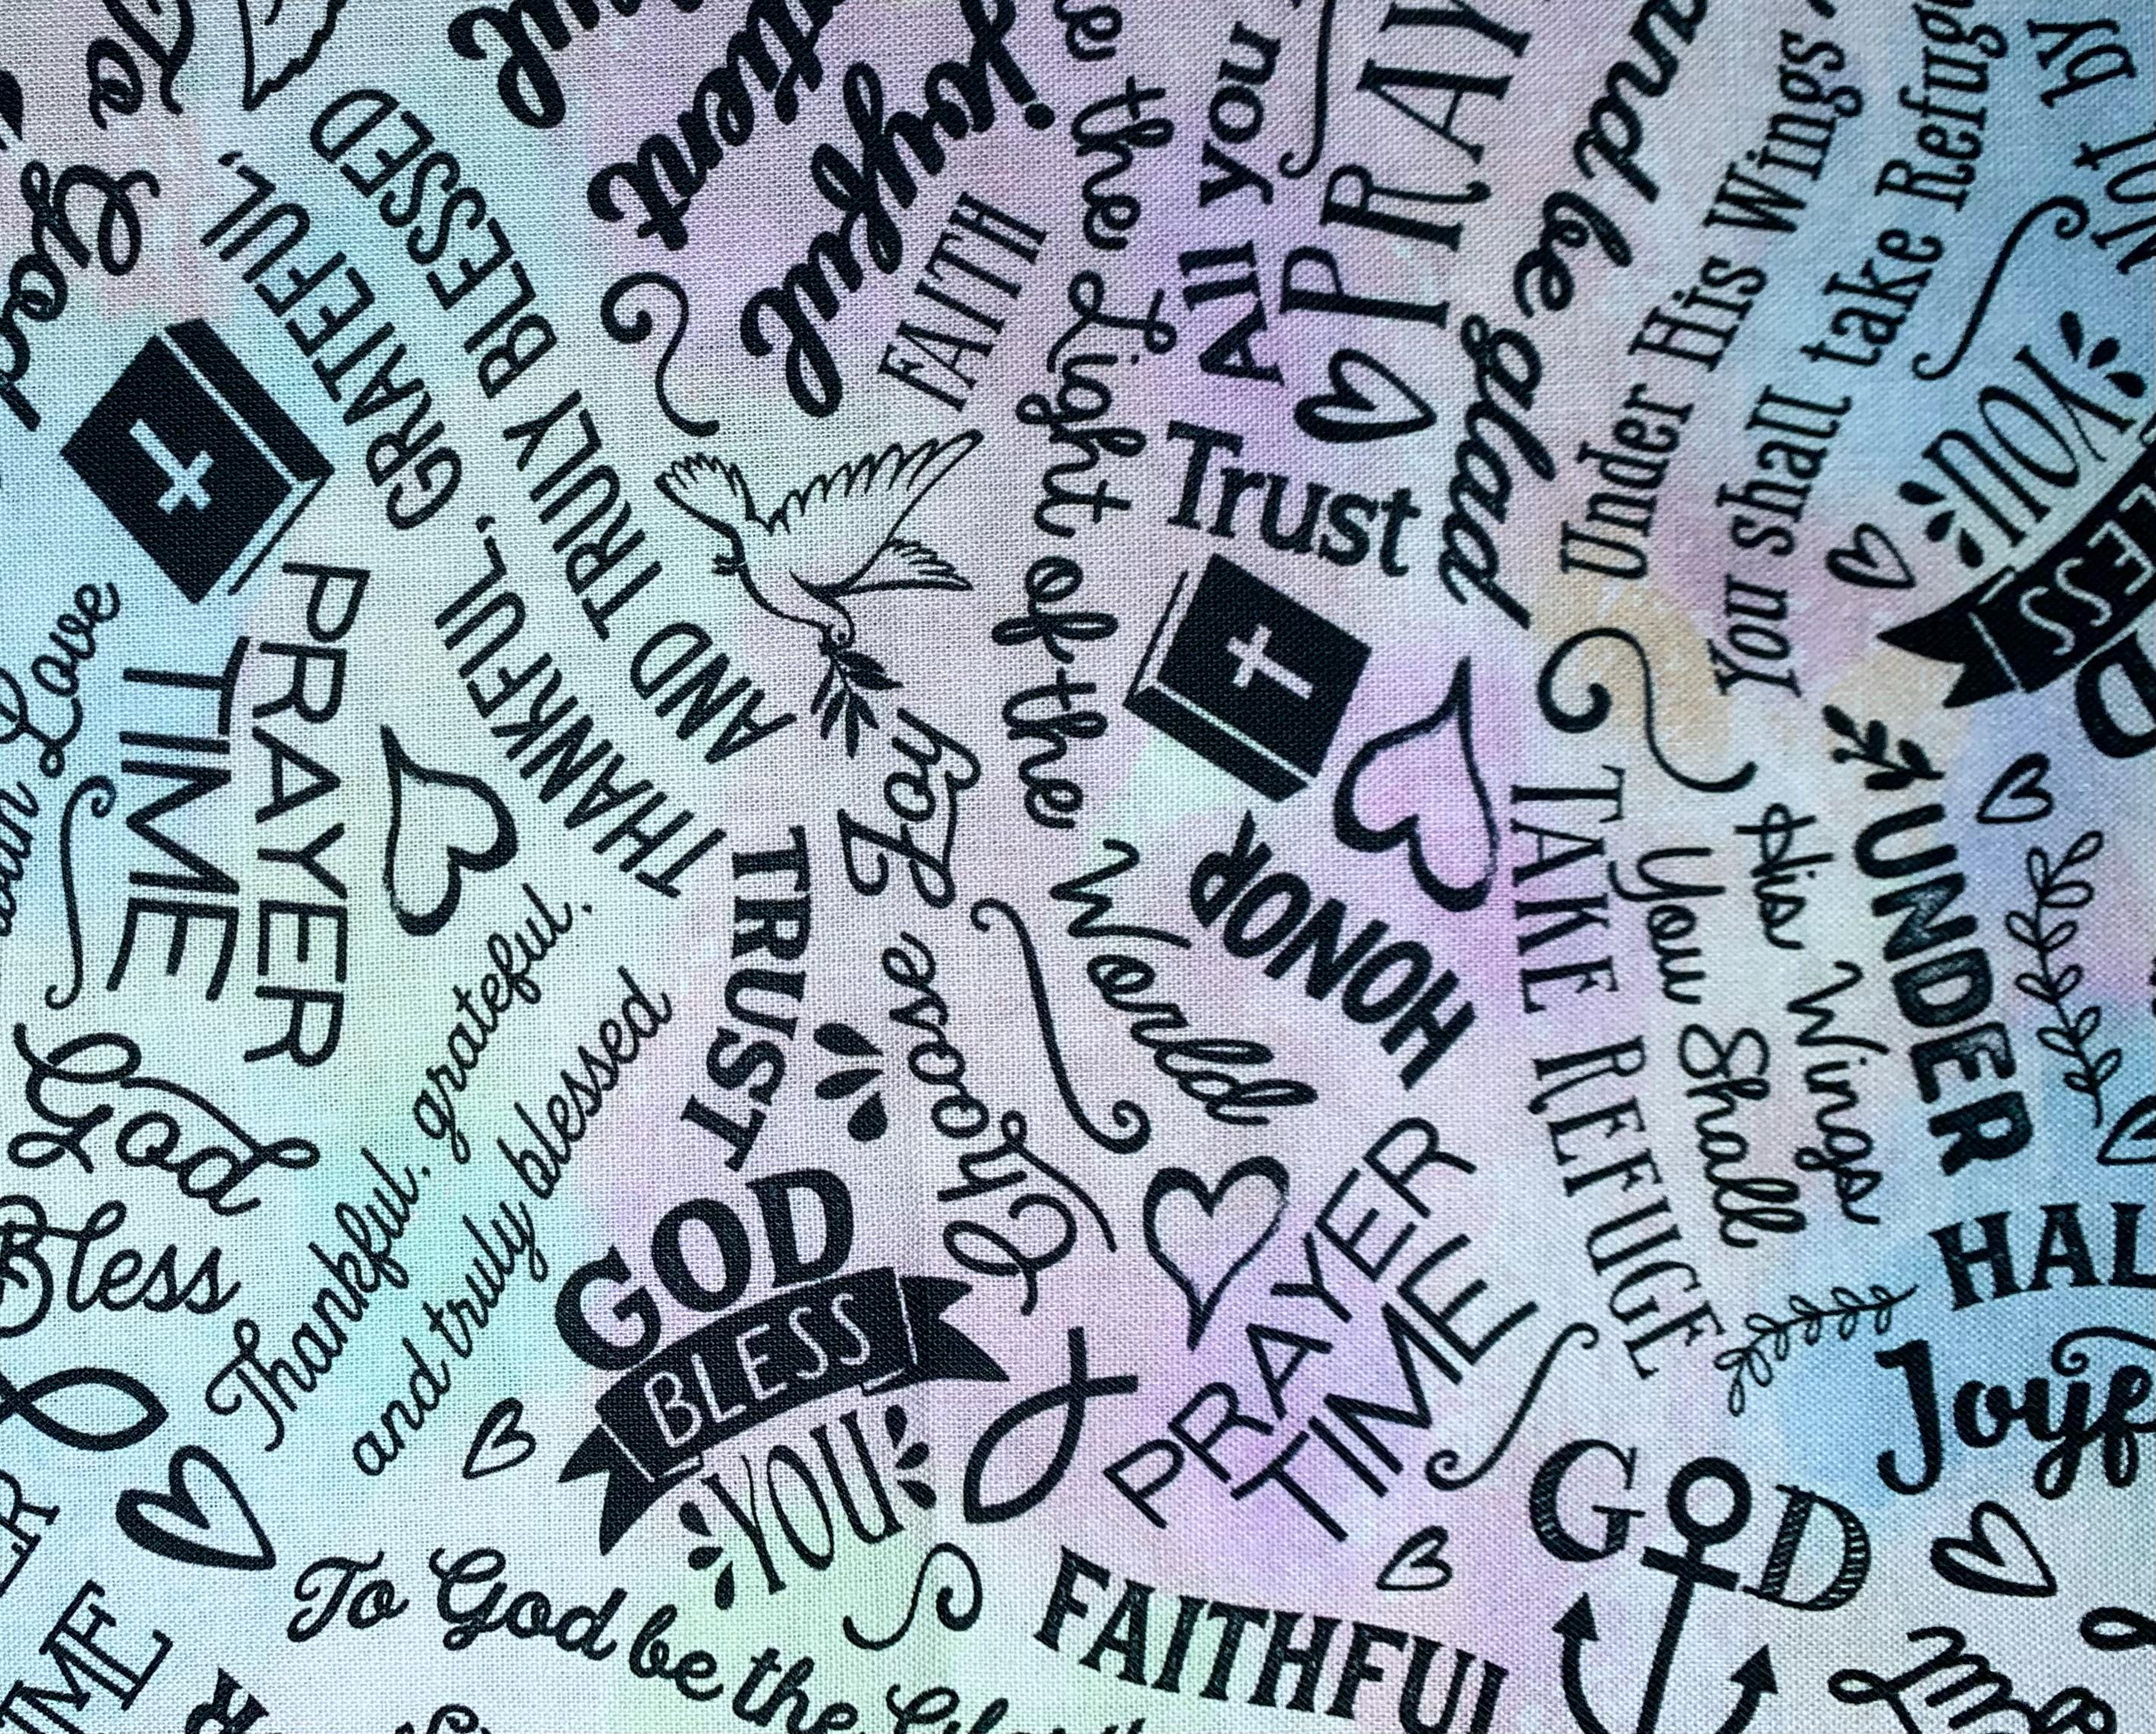 To God
GRATEFUL,
THANKFUL, GRATEFUL,
AND TRULY BLESSED
joyful
FAITH
the Light of the World
All you
PRAY
and be glad
Under His Wings
You shall take Refuge
Not by
YOU
Trust
Love
PRAYER
TIME
Choose Joy
TRUST
HONOR
TAKE REFUGE
You Shall
His Wings
UNDER
God
Bless
Thankful. grateful.
and truly blessed
GOD
BLESS
YOU
PRAYER
TIME
HAL
Joyf
GOD
To God be the
FAITHFUL